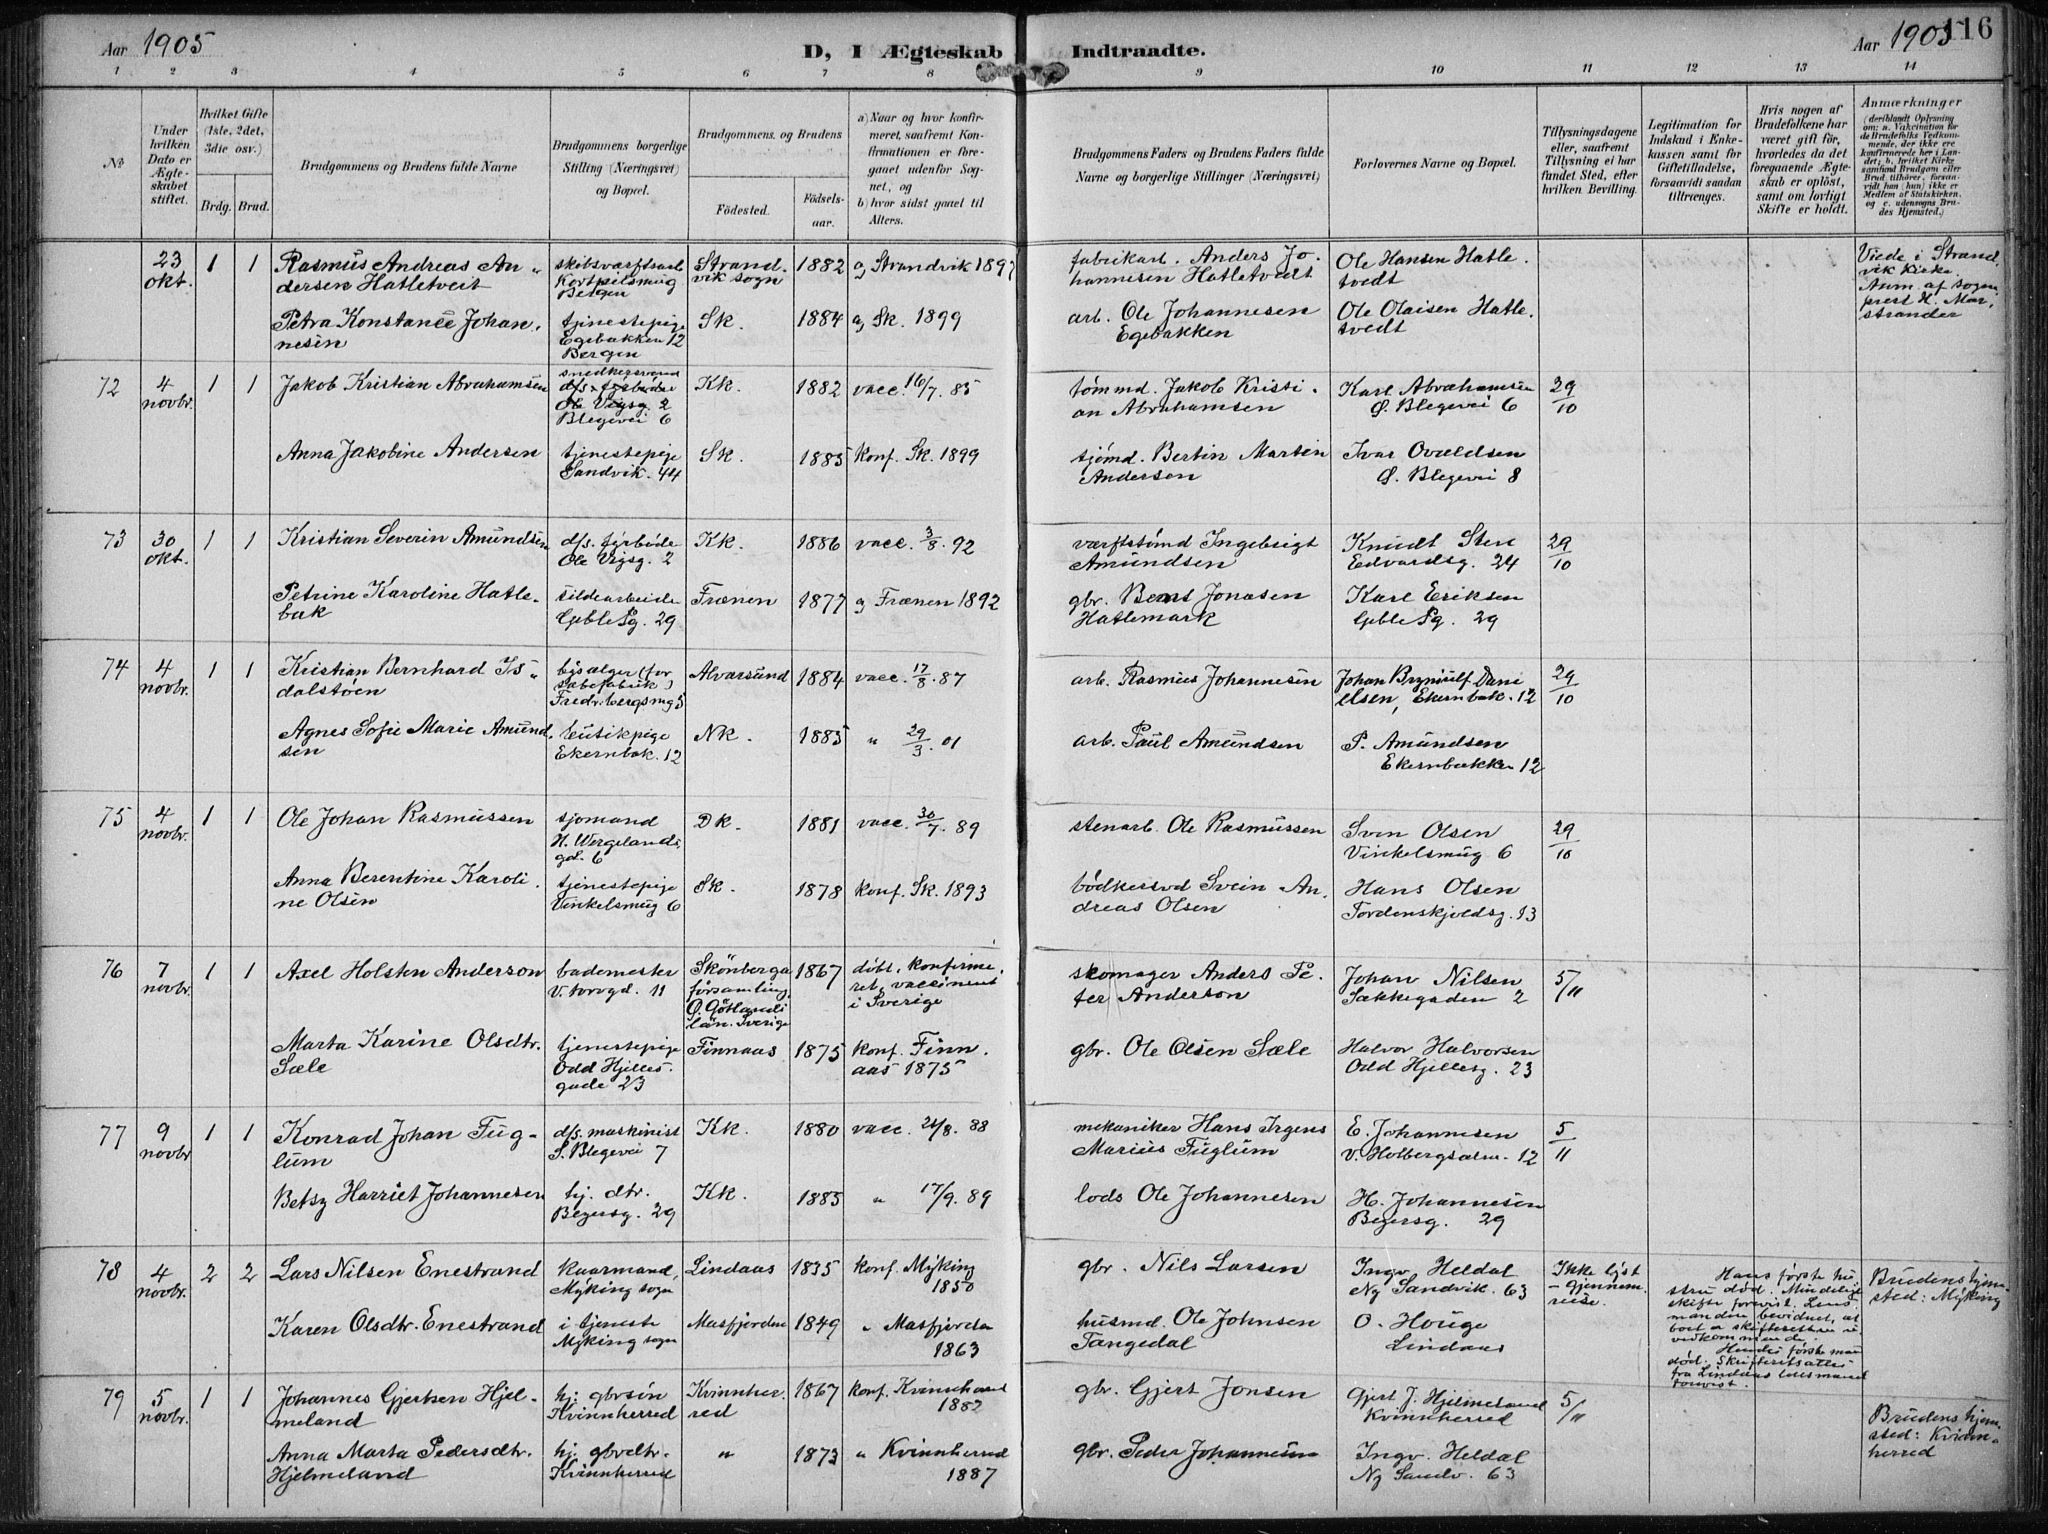 Aar 1905
D, I Ægteskab Indtraadte.
Aar 1905
116
1 2 3 4 5 6 7 8 9 10 11 12 13 14
No
Under hvilken Dato er Ægteskabet stiftet.
Hvilket Gifte (1ste, 2det, 3die osv.)
Brdg. Brud.
Brudgommens og Brudens fulde Navne
Brudgommens borgerlige Stilling (Næringsvei) og Bopæl.
Brudgommens og Brudens
Fødested.
Fødselsaar.
a) Naar og hvor konfirmeret, saafremt Konfirmationen er foregaaet udenfor Sognet, og
b) hvor sidst gaaet til Alters.
Brudgommens Faders og Brudens Faders fulde Navne og borgerlige Stillinger (Næringsvei)
Forlovernes Navne og Bopæl.
Tillysningsdagene eller, saafremt Tillysning ei har fundet Sted, efter hvilken Bevilling.
Legitimation for Indskud i Enkekassen samt for Giftetilladelse, forsaavidt saadan tiltrænges.
Hvis nogen af Brudefolkene har været gift før, hvorledes da det foregaaende Ægteskab er opløst, samt om lovligt Skifte er holdt.
Anmærkninger (deriblandt Oplysning om: a. Vakcination for de Brudefolks Vedkommende, der ikke ere konfirmerede her i Landet; b. hvilket Kirkesamfund Brudgom eller Brud tilhører, forsaavidt han (hun) ikke er Medlem af Statskirken. og c. udensogns Brudes Hjemsted.)
23 okt. 1 1 Rasmus Andreas Andersen Hatletveit
skibsværftsarb Bergen
Strandvik sogn 1882 a) Strandvik 1897
fabrikarb. Anders Johannesen Hatletvedt
Ole Hansen Hatletvedt
Viede i Strandvik Kirke. Anm. af sogneprest H. Marstrander
Petra Konstance Johannesen
tjenestepige Egebakken 12 Bergen
Sk. 1884 a) Sk. 1899
arb. Ole Johannesen Egebakken
Ole Olaisen Hatletvedt
72 4 novbr. 1 1 Jakob Kristian Abrahamsen
snedkersvend
d/s. fyrbøder
Ole Vigsg. 2
Blegevei 6
Kk. 1882 vacc. 16/7. 85
tømmd. Jakob Kristian Abrahamsen
Karl Abrahamsen Ø. Blegevei 6
29/10
Anna Jakobine Andersen
tjenestepige Sandvik. 44
Sk. 1885 konf. Sk. 1899
sjømd. Bertin Martin Andersen
Ivar Ovaldsen Ø. Blegevei 8
73 30 okt. 1 1 Kristian Severin Amundsen
d/s. fyrbøder Ole Vigsg. 2
Kk. 1886 vacc. 3/8. 92
værftstømd Ingebrigt Amundsen
Knudt Sten Edvardsg. 24
29/10
Petrine Karoline Hatlebak
sildearbeide Gyble Pg. 29
Frænen 1877 a) Frænen 1892
gbr. Bernt Jonasen Hatlemark
Karl Eriksen Gyble Pg. 29
74 4 novbr. 1 1 Kristian Bernhard Isdalstøen
bysælger (for sæbefabrik) Fredr.bergsmg 5
Alvarsund 1884 vacc. 17/8. 87
arb. Rasmus Johannesen
Johan Brynulf Danielsen, Ekernbak. 12
29/10
Agnes Sofie Marie Amundsen
butikpige Ekernbak. 12
Nk. 1885 " 29/3. 01
arb. Paul Amundsen
P. Amundsen Ekernbakke 12
75 4 novbr. 1 1 Ole Johan Rasmussen
sjømand H. Wergelandsgd. 6
Dk. 1881 vacc. 30/7. 89
stenarb. Ole Rasmussen
Sven Olsen Vinkelsmug 6
29/10
Anna Berentine Karoline Olsen
tjenestepige Vinkelsmug 6
Sk. 1878 konf. Sk. 1893
bødkersvd Svein Andreas Olsen
Hans Olsen Tordenskjoldsg. 13
76 7 novbr. 1 1 Axel Holsten Anderson
bademester V. torvgd. 11
Skönberga församling Ö. Götlands län. Sverige
1867 døbt, konfirmeret, vaccineret i Sverige
skomager Anders Peter Anderson
Johan Nilsen Sækkegaden 2
5/11
Marta Karine Olsdtr. Sæle
tjenestepige Odd Hjeltesgade 23
Finnaas 1875 konf. Finnaas 1875
gbr. Ole Olsen Sæle
Halvor Halvorsen Odd Hjeltesg. 23
77 9 novbr 1 1 Konrad Johan Fuglum
d/s. maskinist S. Blegevei 7
Kk. 1880 vacc. 21/8. 88
mekaniker Hans Irgens Marius Fuglum
E. Johannesen v. Holbergsalm. 12
5/11
Betsy Harriet Johannesen
hj. dtr. Beyersg. 29
Kk. 1885 " 17/9. 89
lods Ole Johannesen
H. Johannesen Beyersg. 29
78 4 novbr. 2 2 Lars Nilsen Enestrand
kaarmand, Myking sogn
Lindaas 1835 konf. Myking 1850
gbr. Nils Larsen
Ingv. Heldal Ny Sandvik. 63
Ikke lyst – Gjennemreise.
Hans første hustru død. Mindelig skifte forevist. Lensmanden bevidnet, at boet er skifteretten uvedkommende.
Hendes første man død. Skifteretsattest fra Lindaas lensmand forevist.
Brudens hjemsted: Myking
Karen Olsdtr. Enestrand
i tjeneste Myking sogn
Masfjorden 1849 " Masfjorden 1863
husmd. Ole Johnsen Tangedal
O. Houge Lindaas
79 5 novbr. 1 1 Johannes Gjertsen Hjelmeland
hj. gbrsøn Kvinnherred
Kvinnherred 1867 konf. Kvinnherred 1882
gbr. Gjert Jonsen
Gjert J. Hjelmeland Kvinnherred
5/11
Brudens hjemsted: Kvinnherred
Anna Marta Pedersdtr. Hjelmeland
hj. gbrdtr. Kvinnherred
" 1873 " Kvinnherred 1887
gbr. Peder Johannesen
Ingv. Heldal Ny Sandv. 63